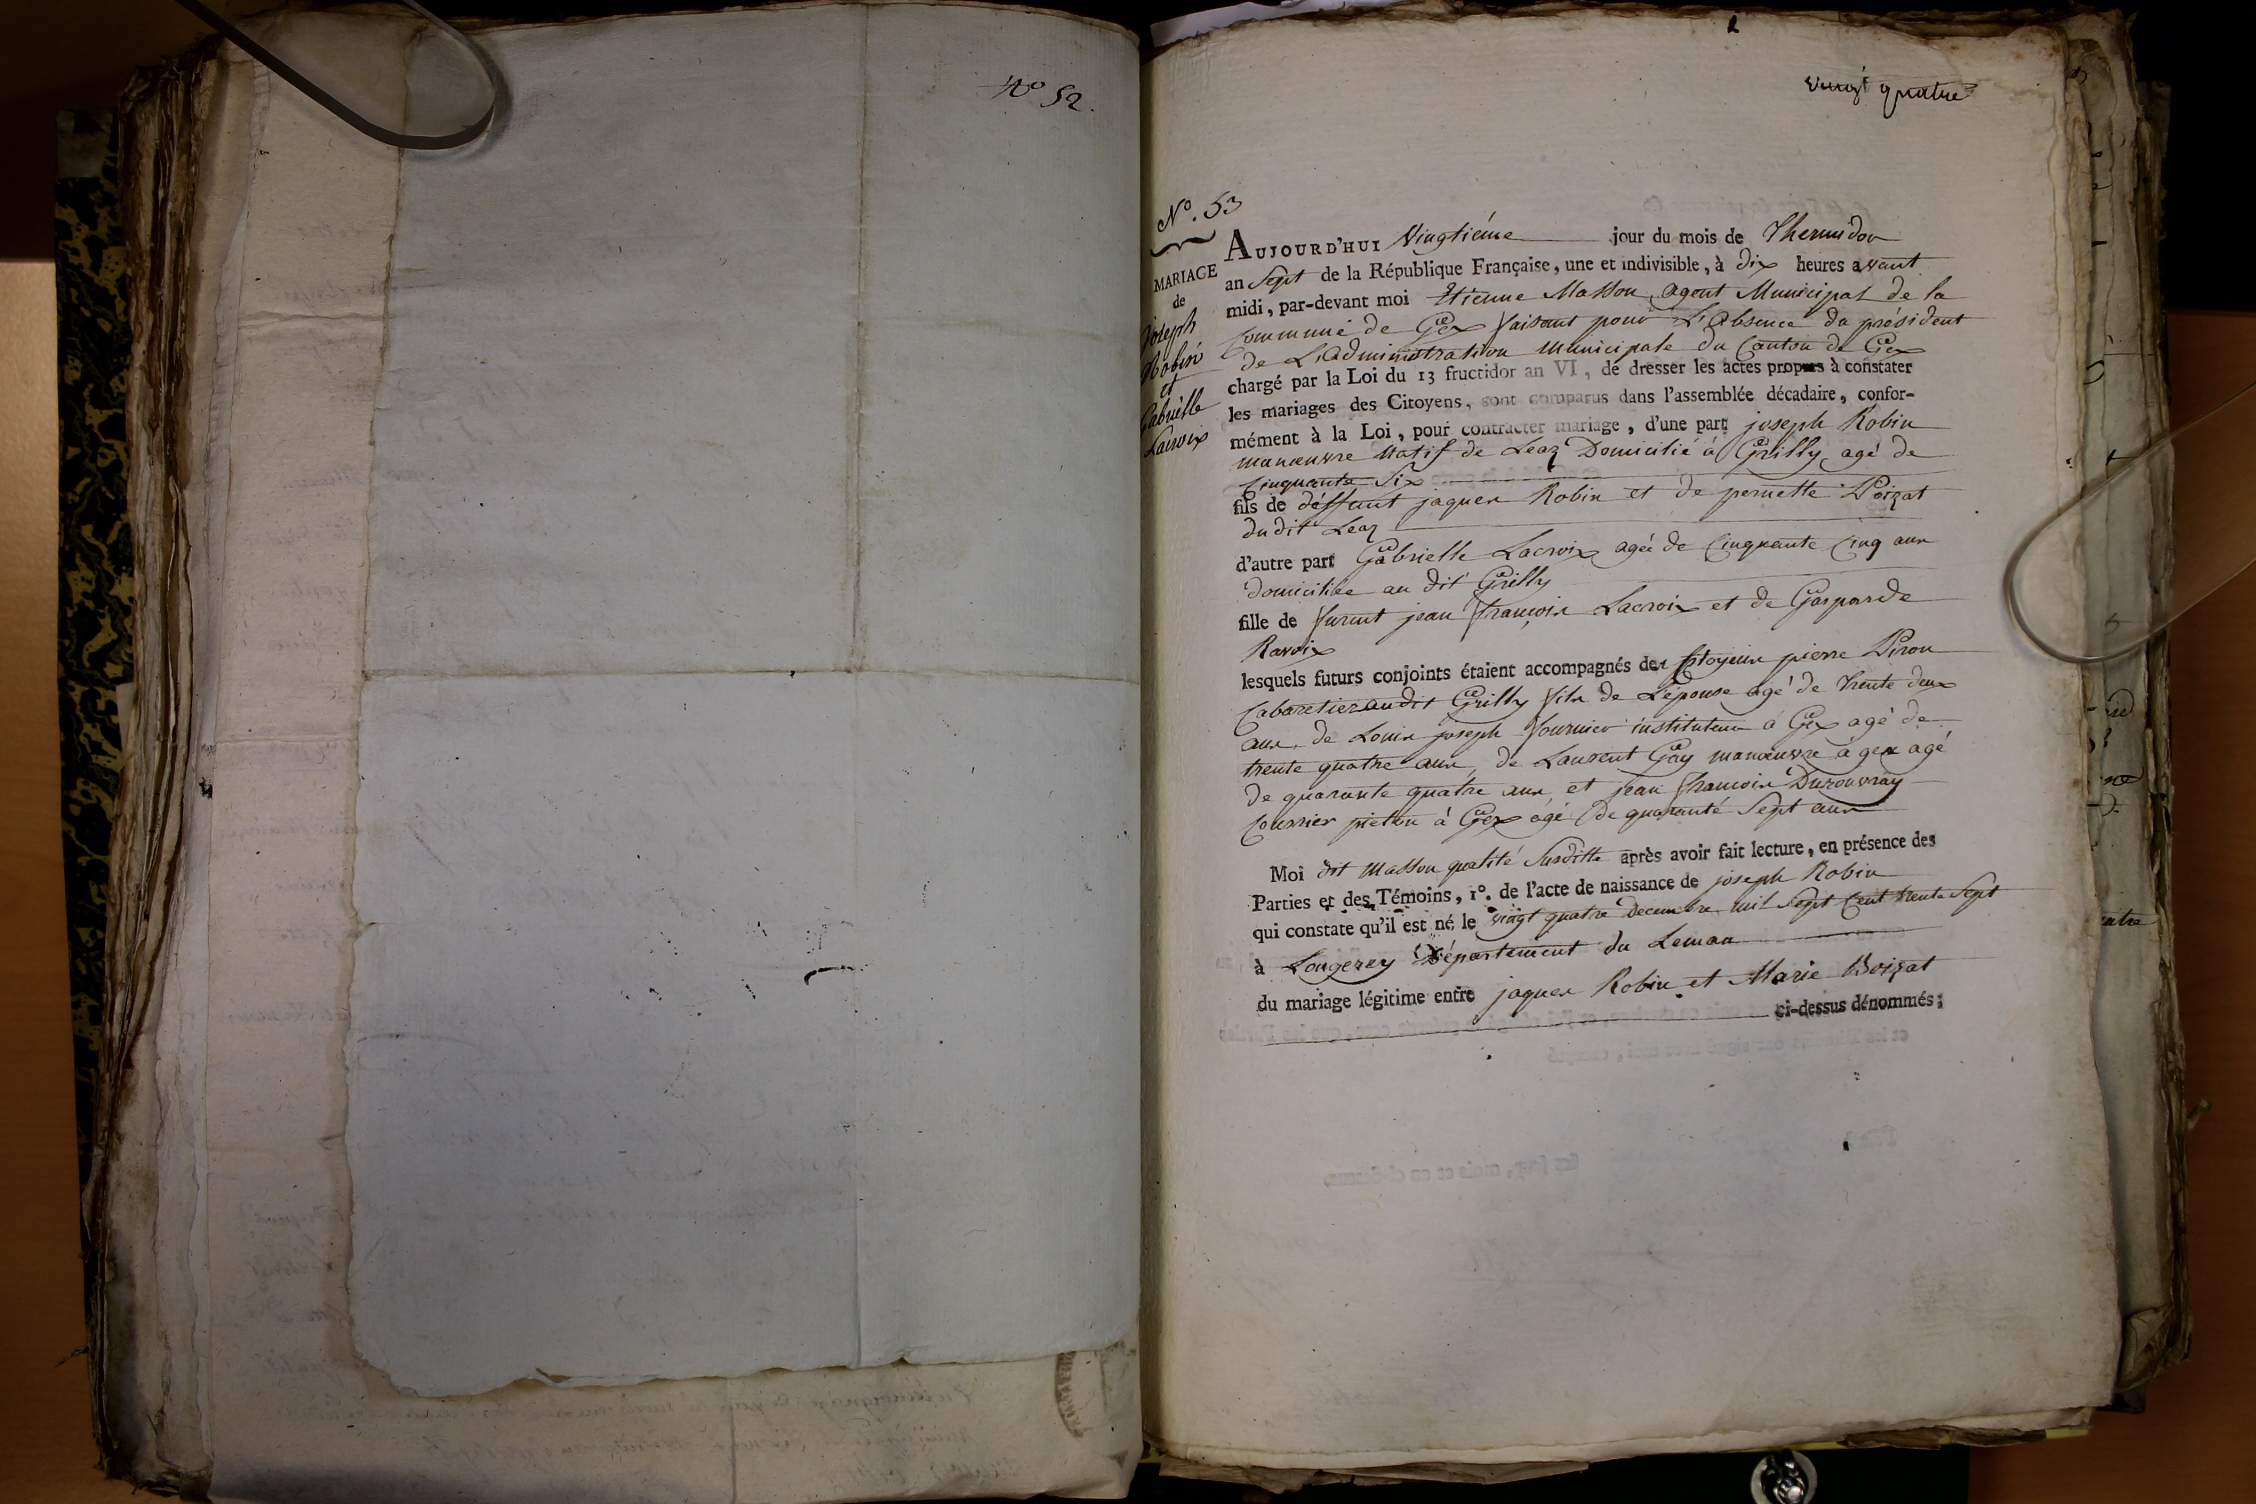 N° 52.
vingt quatre
N°. 53
MARIAGE
de
joseph
Robin
et
Gabrielle
Lacroix
AUJOURD'HUI Vingtiéme jour du mois de Thermidor
an Sept de la République Française, une et indivisible, à dix heures avant
midi, par-devant moi Etienne Masson, agent Municipal de la
Commune de Gex faisant pour L'absence du président
de L'administration municipale du Canton de Gex
chargé par la Loi du 13 fructidor an VI, de dresser les actes propres à constater
les mariages des Citoyens, sont comparus dans l'assemblée décadaire, confor-
mément à la Loi, pour contracter mariage, d'une part joseph Robin
manœuvre natif de Leaz Domicilié à Grilly, agé de
Cinquante Six
fils de déffunt jaques Robin et de pernette Poizat
du dit Leaz
d'autre part Gabrielle Lacroix agée de Cinquante Cinq ans
domiciliée au dit Grilly
fille de furent jean françois Lacroix et de Gasparde
Ravoix
lesquels futurs conjoints étaient accompagnés des Citoyens pierre Piron
Cabaretier audit Grilly fils de L'épouse agé de trente deux
ans, de Louis joseph fournier instituteur à Gex agé de
trente quatre ans, de Laurent Gay manœuvre à gex agé
de quarante quatre ans et jean francois Duzouvray
Courrier pieton à Gex agé de quarante Sept ans
Moi dit Masson qualité Susditte après avoir fait lecture, en présence des
Parties et des Témoins, 1°. de l'acte de naissance de joseph Robin
qui constate qu'il est né le vingt quatre decembre mil Sept Cent trente Sept
à Longerey Département du Leman
du mariage légitime entre jaques Robin et Marie Boizat
ci-dessus dénommés;